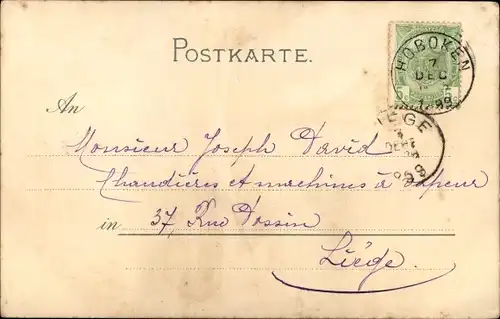 POSTKARTE.
HOBOKEN
7
DEC
1899
5
5
LIÈGE
DEC
An
Monsieur Joseph David
Chaudières et machines à vapeur
in 37 Rue Dossin
Liége.